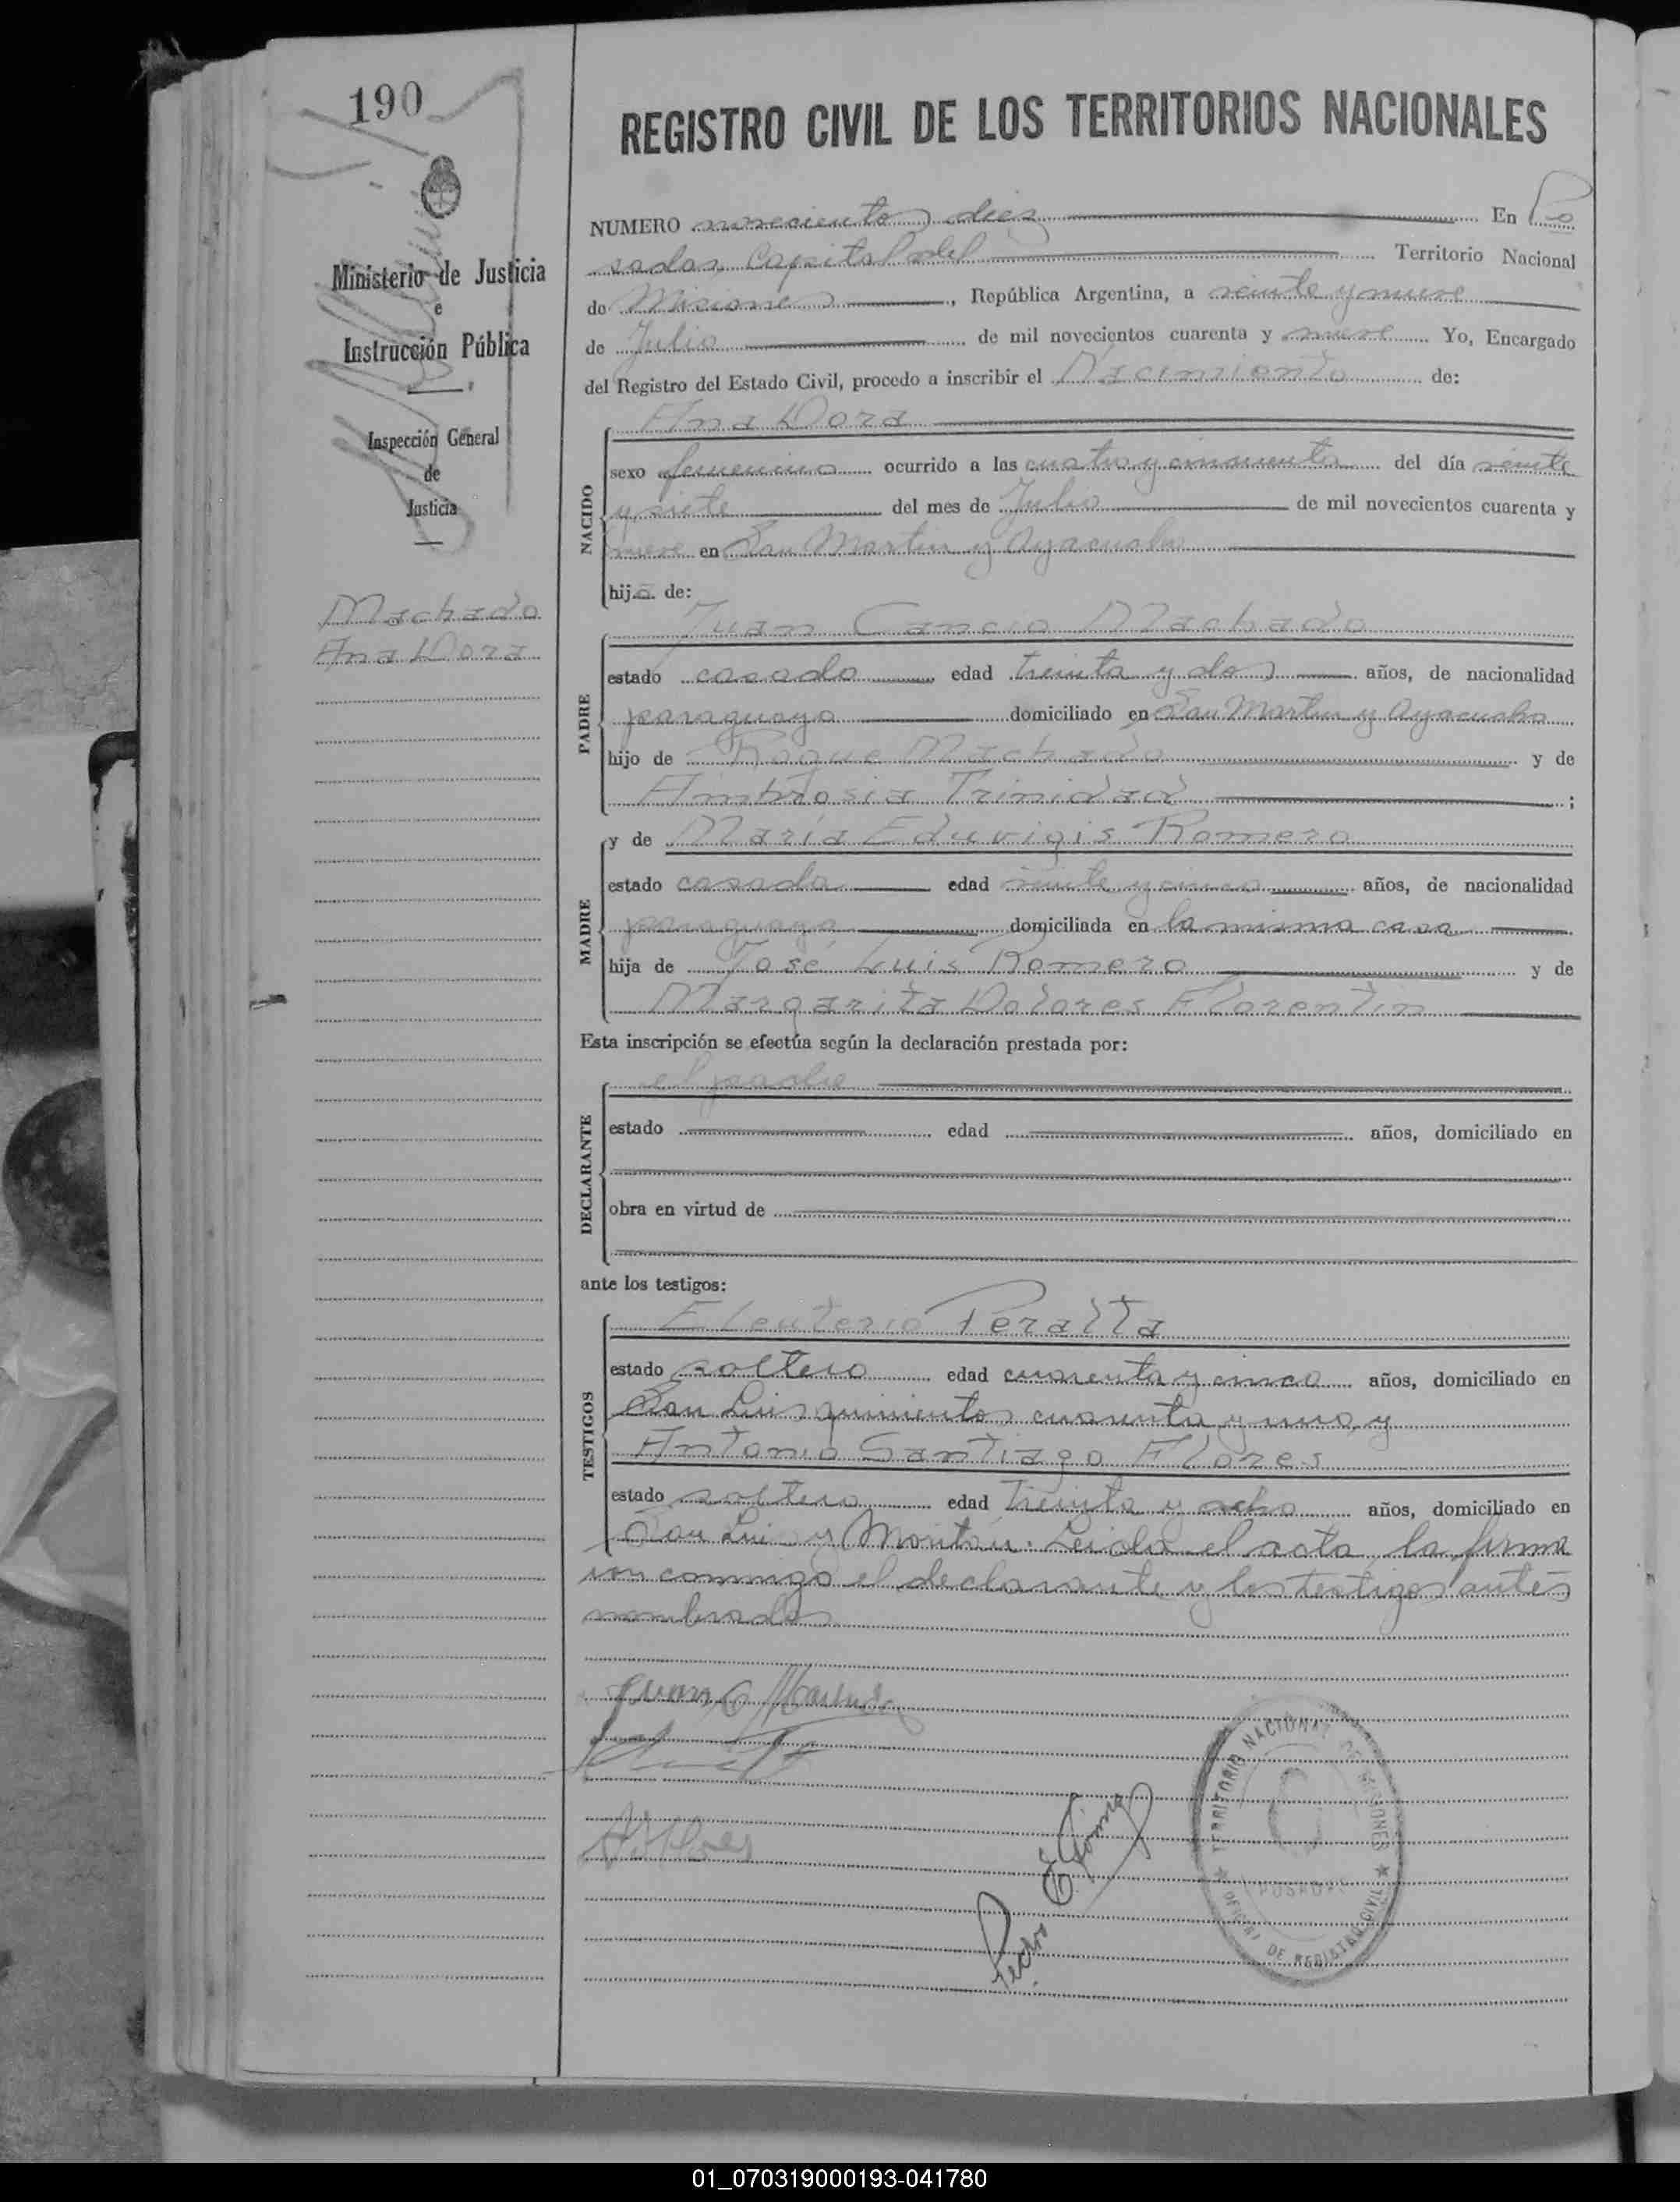 190
Ministerio de Justicia
e
Instrucción Pública
Inspección General
de
Justicia
Machado
Ana Dora
REGISTRO CIVIL DE LOS TERRITORIOS NACIONALES
NUMERO novecientos diez En Po
sadas, Capital del Territorio Nacional
de Misiones, República Argentina, a veinte y nueve
de Julio de mil novecientos cuarenta y nueve Yo, Encargado
del Registro del Estado Civil, procedo a inscribir el Nacimiento de:
NACIDO
Ana Dora
sexo femenino ocurrido a las cuatro y cincuenta del día veinte
y siete del mes de Julio de mil novecientos cuarenta y
nueve en San Martin y Ayacucho
hija de:
PADRE
Juan Cancio Machado
estado casado edad treinta y dos años, de nacionalidad
paraguayo domiciliado en San Martin y Ayacucho
hijo de Roque Machado y de
Ambrosia Trinidad ;
MADRE
y de María Eduvigis Romero
estado casada edad veinte y cinco años, de nacionalidad
paraguaya domiciliada en la misma casa
hija de José Luis Romero y de
Margarita Dolores Florentin
Esta inscripción se efectúa según la declaración prestada por:
DECLARANTE
el padre
estado edad años, domiciliado en
obra en virtud de
ante los testigos:
TESTIGOS
Eleuterio Peralta
estado soltero edad cuarenta y cinco años, domiciliado en
San Luis quinientos cuarenta y uno, y
Antonio Santiago Flores
estado soltero edad treinta y ocho años, domiciliado en
San Luis y Moritán. Leida el acta, la firma
ron conmigo el declarante y los testigos antes
nombrados
Juan C Machado
Pedro E.
TERRITORIO NACIONAL DE MISIONES
POSADAS
OFICINA DE REGISTRO CIVIL
01_070319000193-041780